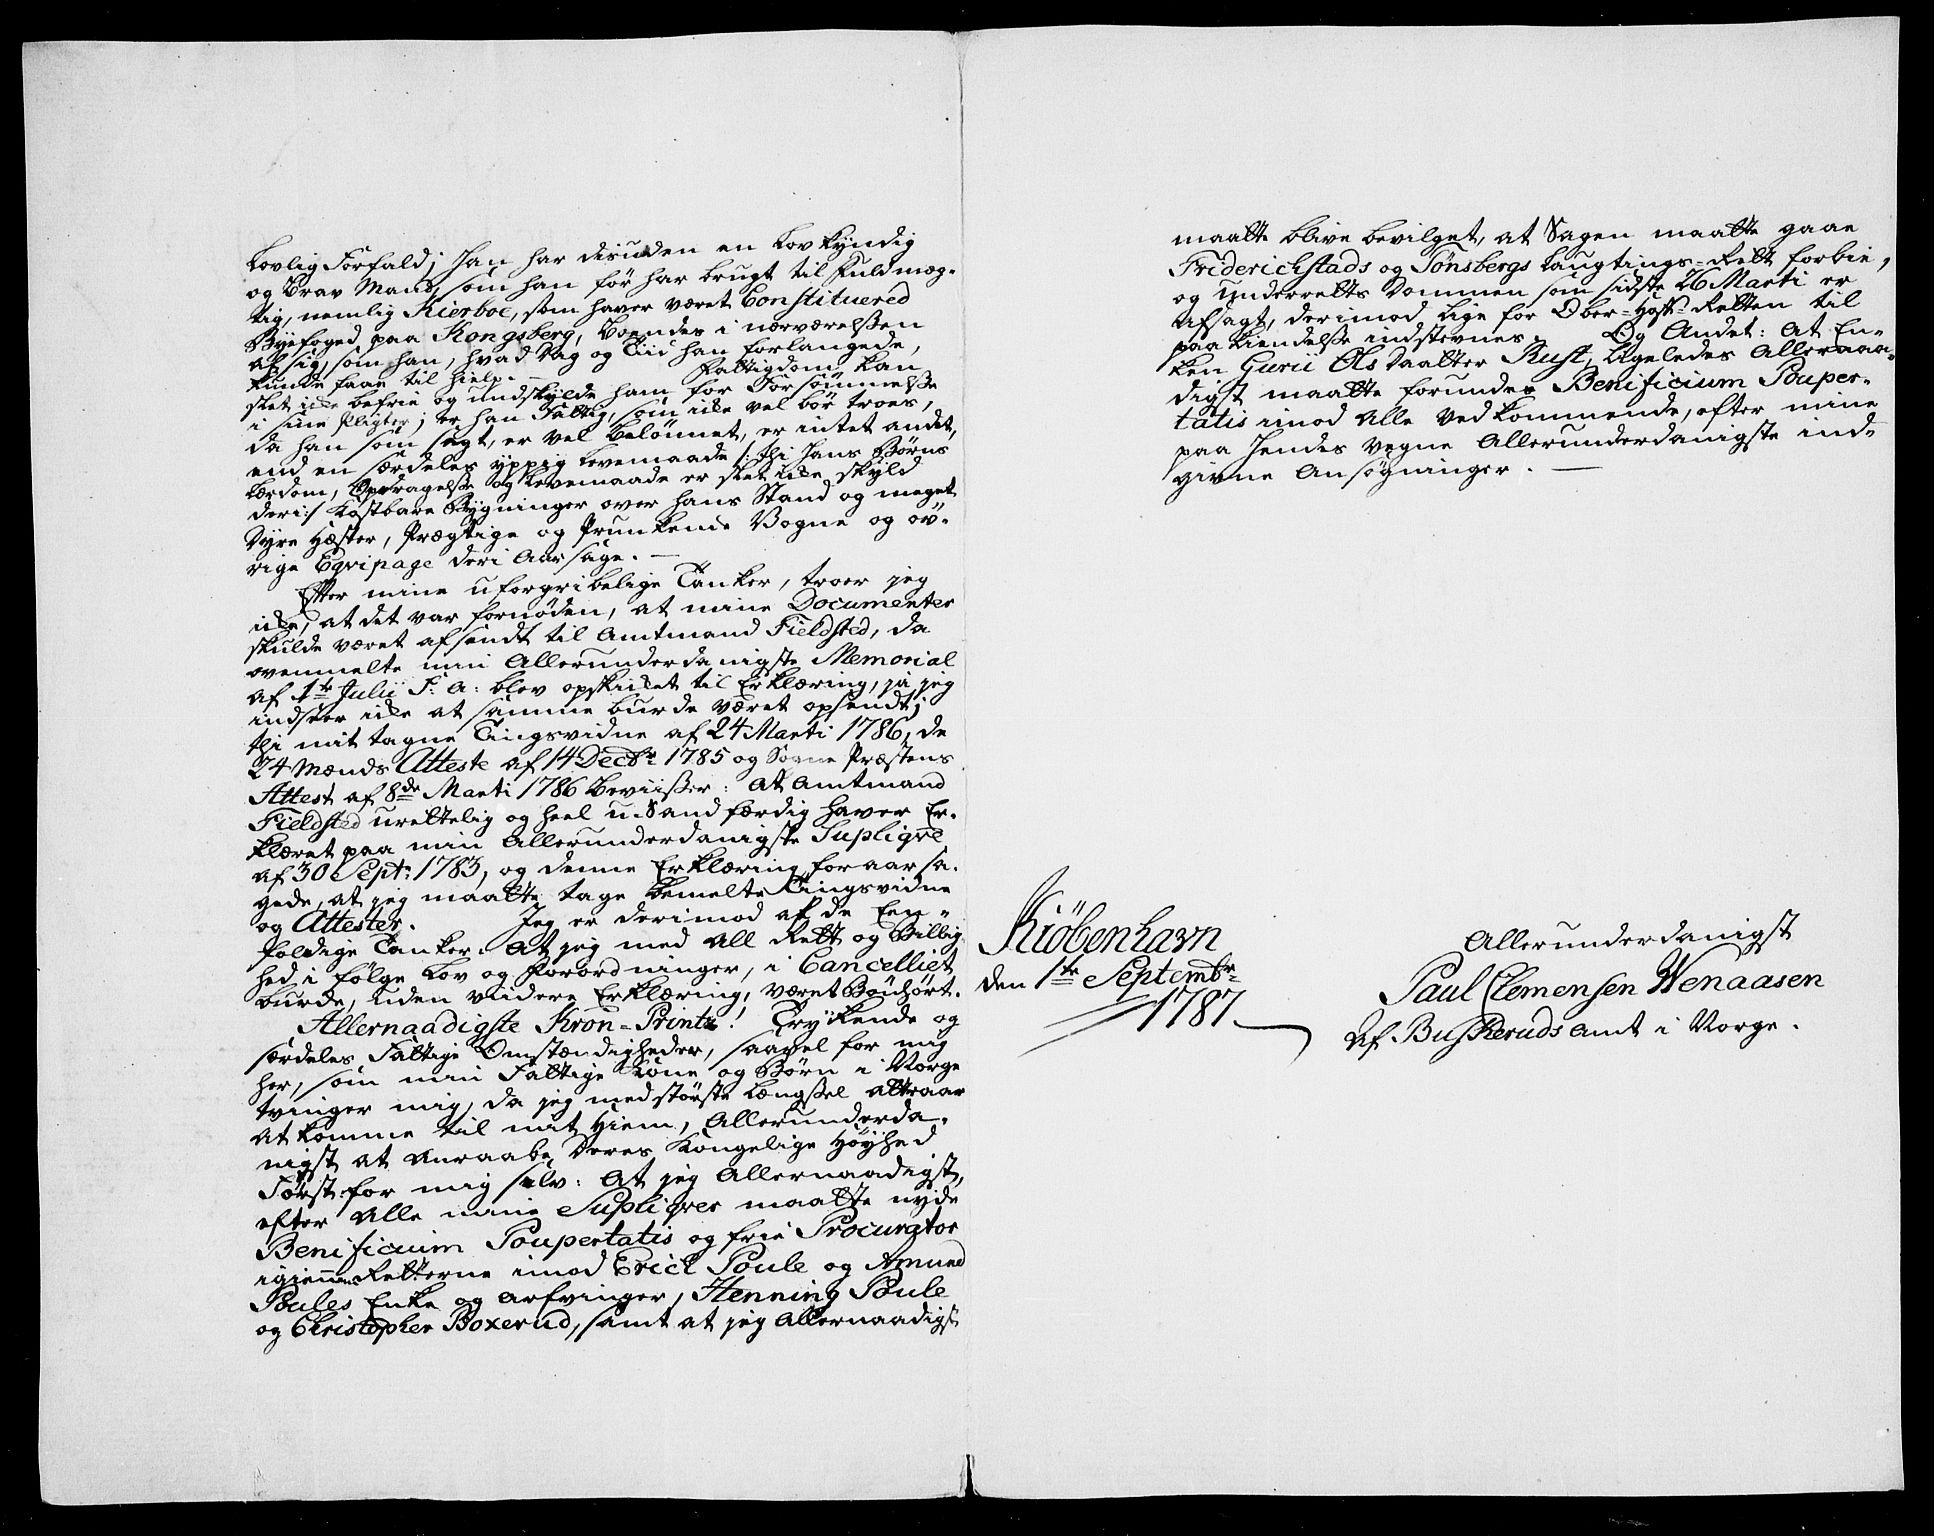 Lovlig Forfald; Han har disuden en Lovkyndig
og brav Mand, som han før har brugt til Fuldmæg-
tig, nemlig Kierboe, som haver været Constituered
Byefoged paa Kongsberg, boendes i nærværelßen
af sig, som han, hvad Dag og Tiid han forlangede,
kunde faae til hielp. — Fattigdom kan
slet icke befrie og undskylde ham for Forsømmelße
i sine Pligter; er han Fattig, som icke vel bør troes,
da han som sagt, er vel belønnet, er intet andet,
end en særdeles yppig Levemaade /: thi Hans Børns
Lærdom, Opdragelße og Levemaade er slet icke skyld
deri :/ kostbare Bygninger over hans Stand og meget
dyre Hæster, Prægtige og Prunkende Vogne og øv-
rige Eqvipage deri Aarsage. —
Efter mine uforgribelige Tanker, troer jeg
icke, at det var fornøden, at mine Documenter
skulde været afsendt til Amtmand Fieldsted, da
ovenmelte min Allerunderdanigste Memorial
af 1te Julii F: A: blev opskicket til Erklæring, ja jeg
indseer icke at samme burde været opsendt;
thi mit tagne Tingsvidne af 24 Marti 1786, de
24 Mænds Atteste af 14 Decbr 1785 og Sogne Præstens
Attest af 8de Marti 1786 beviißer: At Amtmand
Fieldsted urettelig og heel u-Sandfærdig haver Er-
klæret paa min Allerunderdanigste Supliqve
af 30 Sept: 1783, og denne Erklæring foraarsa-
gede, at jeg maatte tage bemelte Tingsvidne
og Attester. Jeg er derimod af de Een-
foldige Tanker: At jeg med All Rett og Billig-
hed i følge Lov og Forordninger, i Cancelliet
burde, uden videre Erklæring, været Bønhørt.
Allernaadigste Kron-Printz! Tryckende og
særdeles Fattige Omstændigheder, saavel for mig
her, som min Fattige Kone og Børn i Norge
tvinger mig, da jeg med største Længßel attraar
at komme til mit Hiem, Allerunderda-
nigst at anraabe Deres Kongelige Høyhed
Først for mig selv: At jeg Allernaadigst,
efter Alle mine Supliqver maatte nyde
Benificium Poupertatis og frie Procurator
igiennem Retterne imod Erick Poule og Amund
Poules Enke og Arfvinger, Henning Poule
og Christopher Boxerud, samt at jeg Allernaadigst
maatte blive bevilget, at Sagen maatte gaae
Friderichstads og Tønsbergs Laugtings-Rett forbie,
og Underretts Dommen som sidste 26 Marti er
afsagt, derimod lige for Ober-Hoff-Retten til
paakiendelße indstevnes. Og Andet: At En-
ken Gurii Ols Daatter Rust, ligeledes Allernaa-
digst maatte forundes Benificium Pouper-
tatis imod Alle Vedkommende, efter mine
paa Hendes vegne Allerunderdanigste ind-
givne Ansøgninger. —
Kiöbenhavn
den 1te Septembr
1787
Allerunderdanigst
Paul Clemensen Wenaasen
af Buskeruds Amt i Norge.